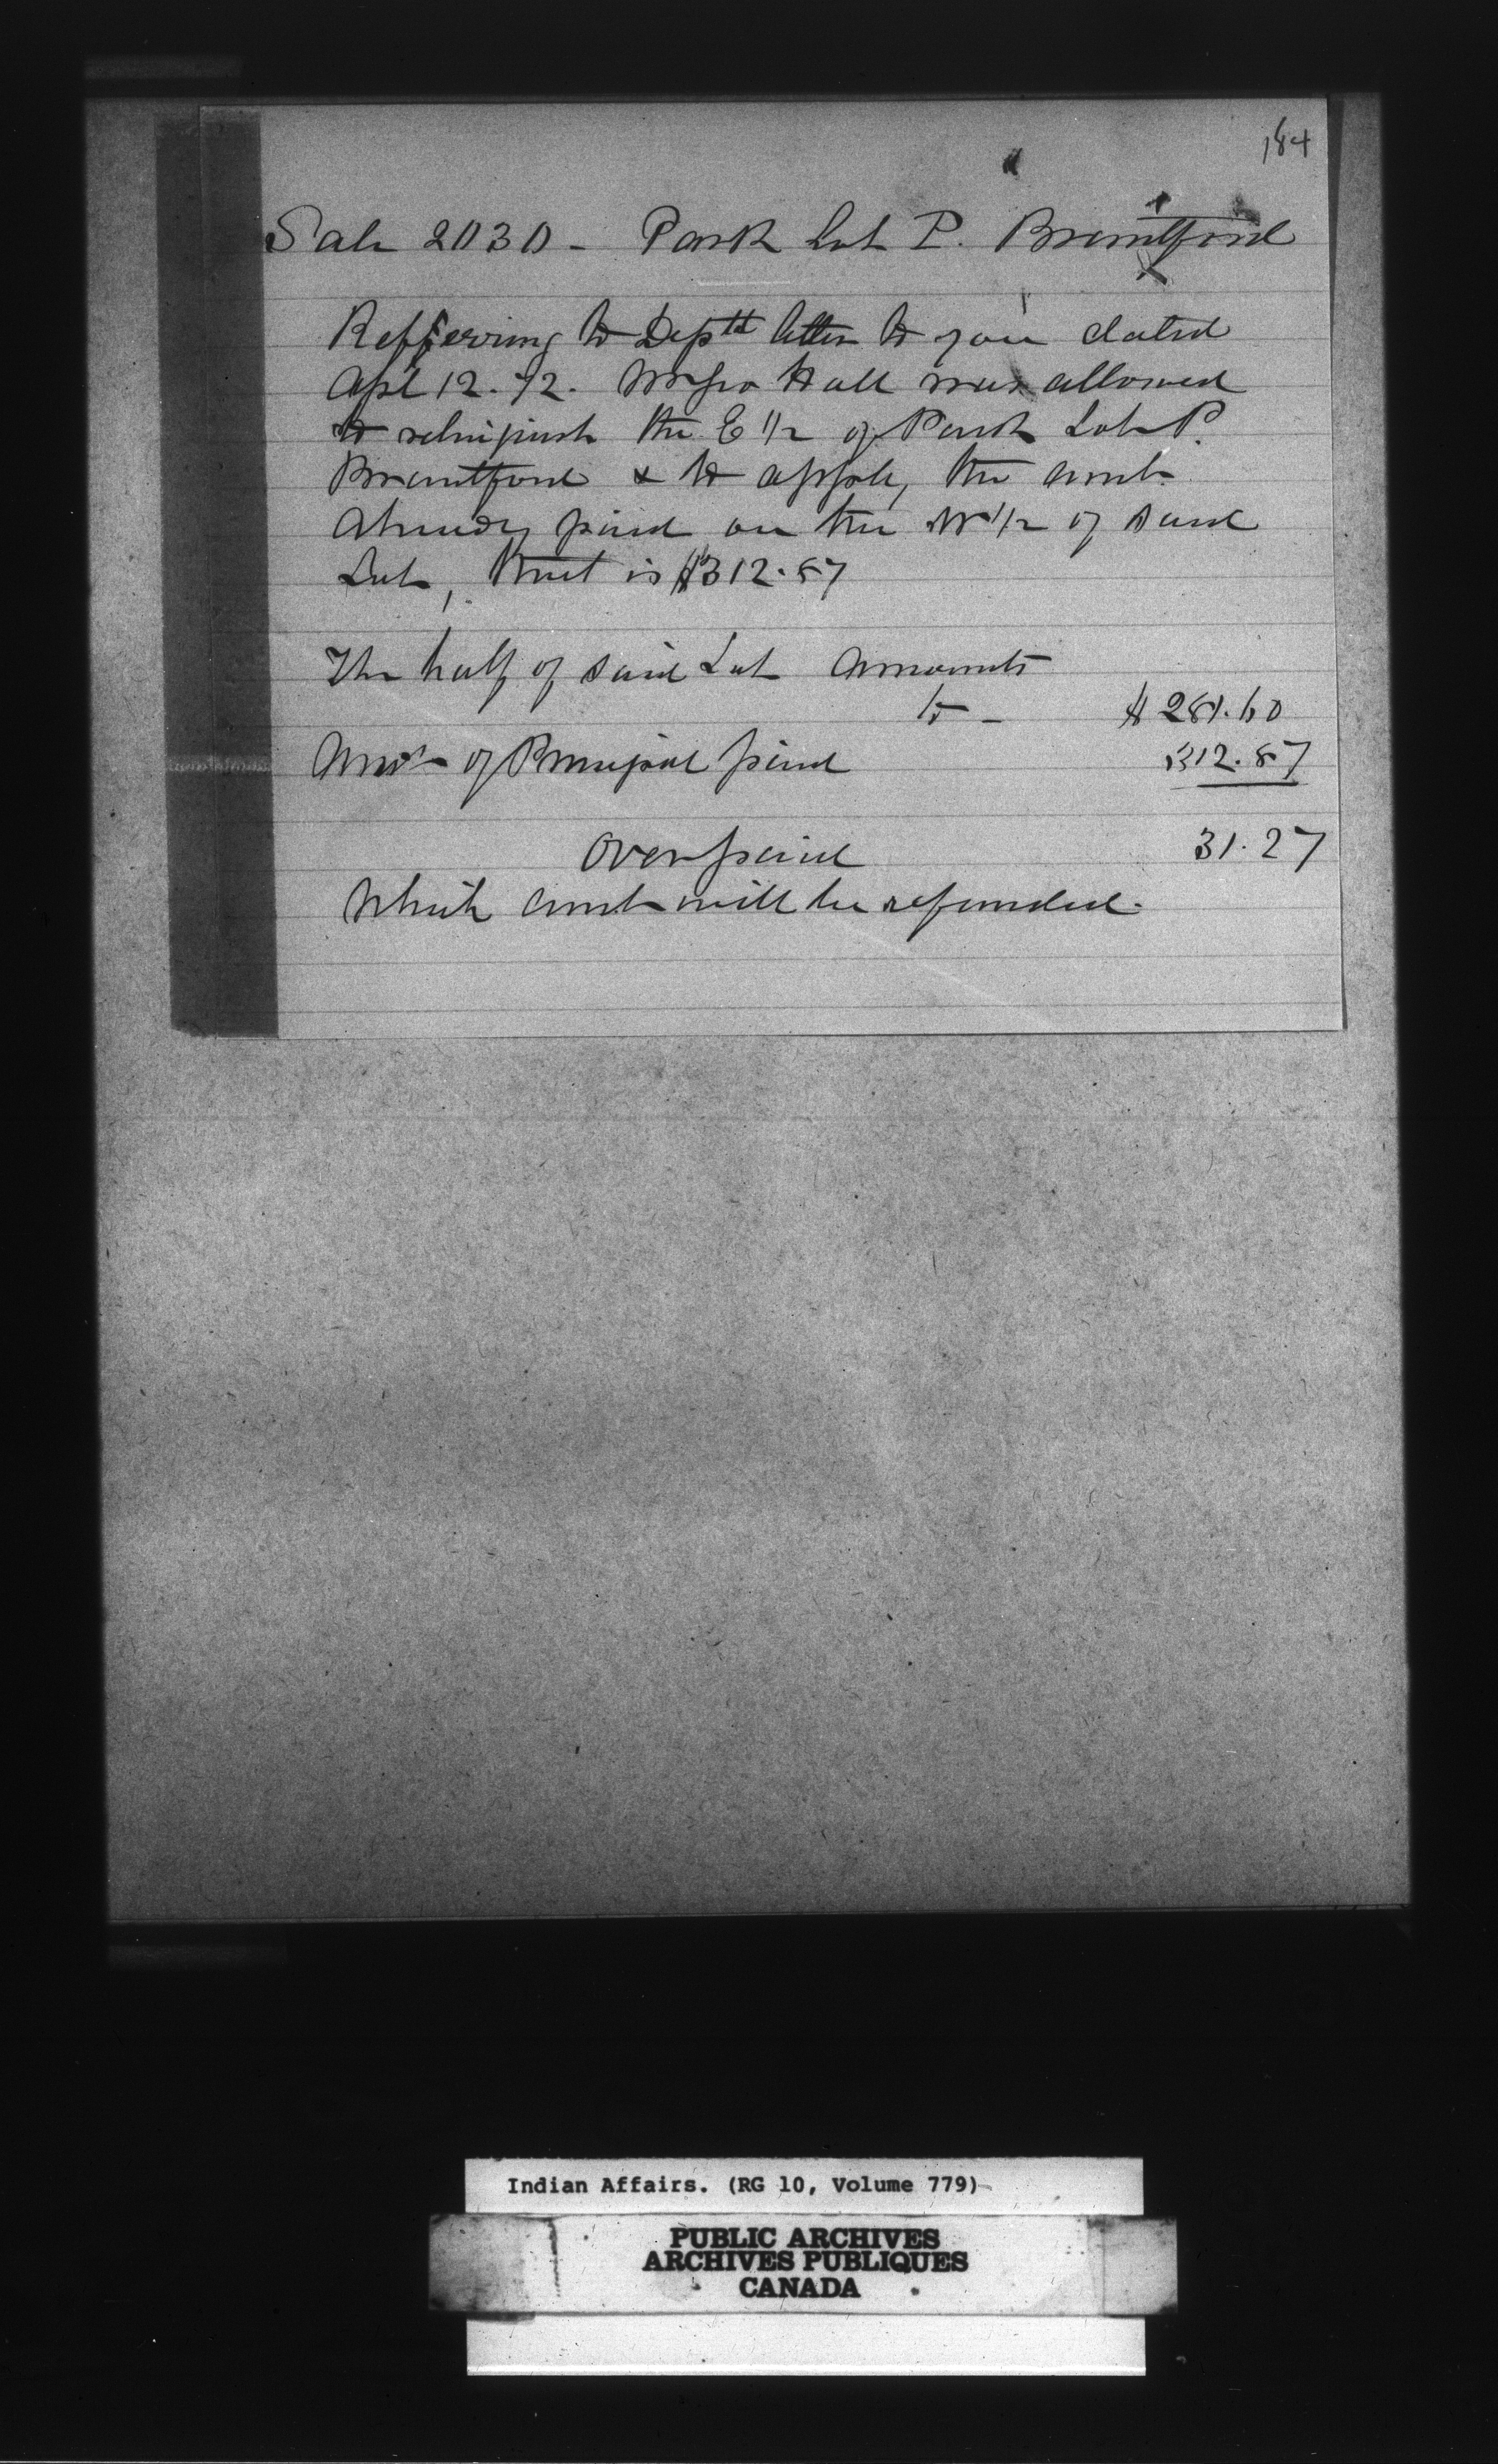 184
Sale 2030 - Park Lot P. Brantford
Refferring to Deptl letter to you dated
Apl 12. 72. Hall was allowed
to relinqush the E 1/2 of Park Lot P.
Brantford & to apply, the amt
already paid on the W 1/2 of said
Lot, that is $312.87
The half of said Lot amounts
to - $ 281.60
Amt of Principal paid 312.87
Overpaid 31.27
Which amt will be refunded.
Indian Affairs. (RG 10, Volume 779)
PUBLIC ARCHIVES
ARCHIVES PUBLIQUES
CANADA